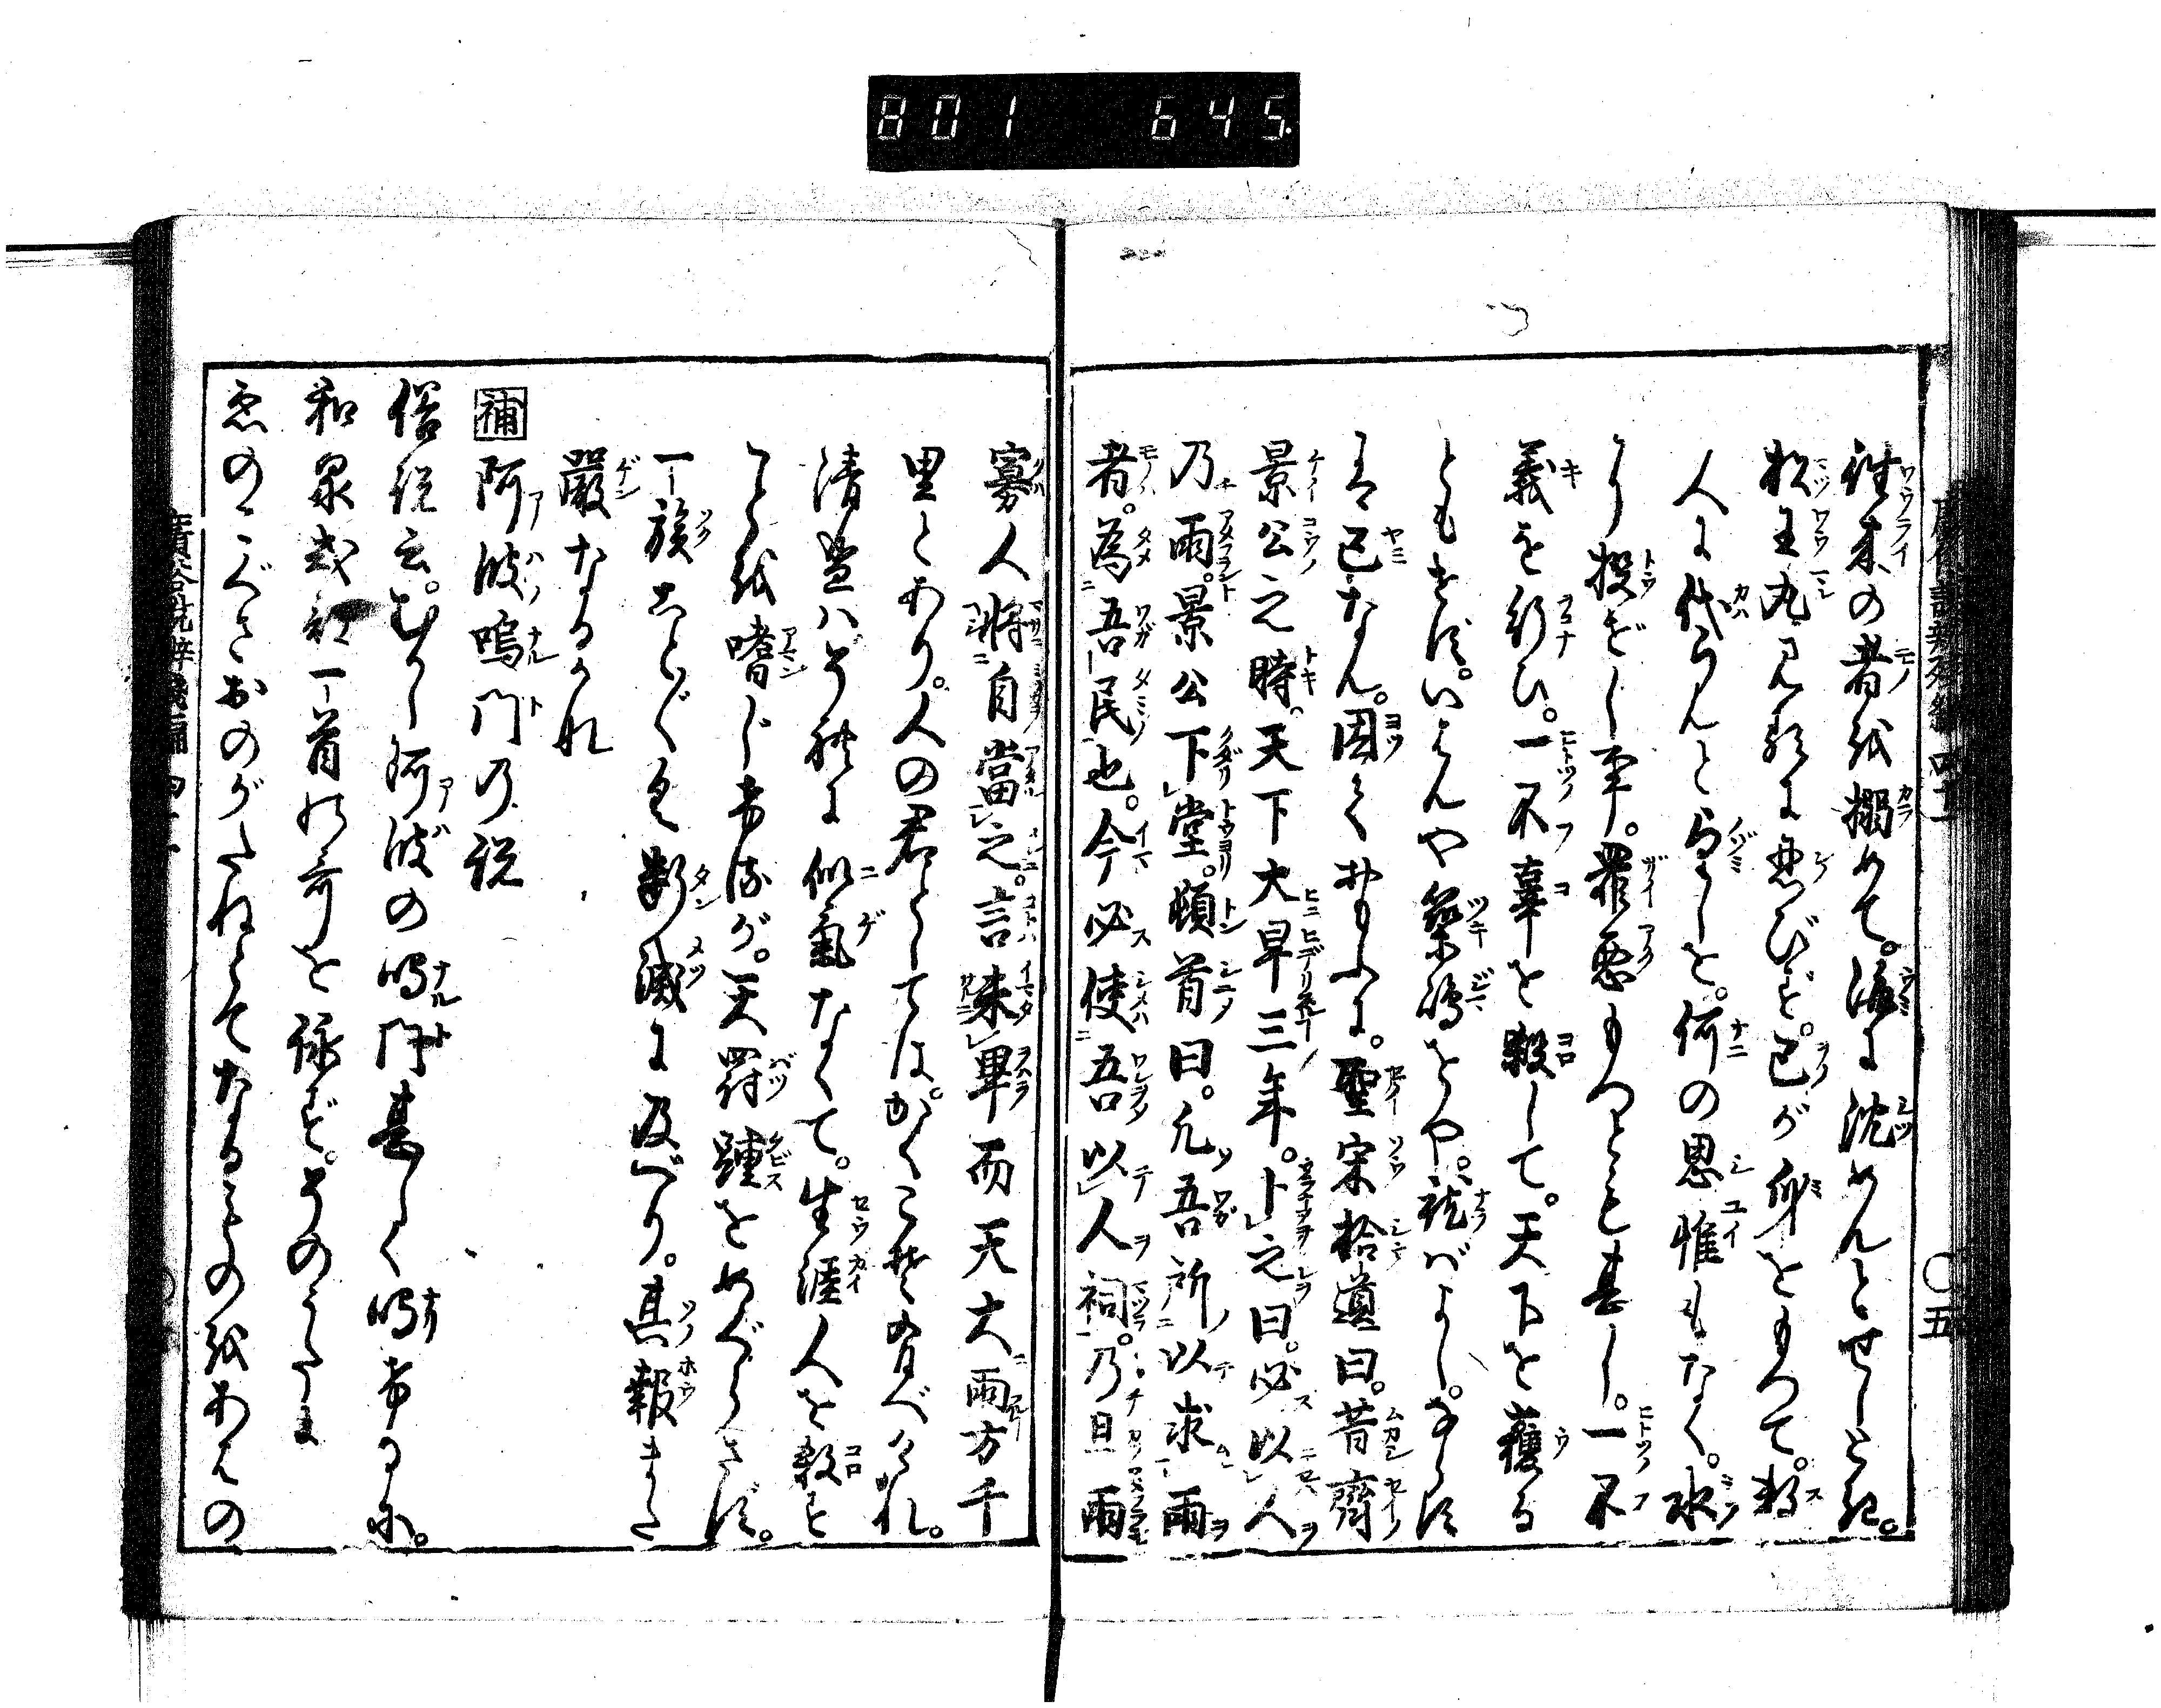 801 645.
往来の者を搦めて。海に沈めんとせしとき。
松王丸見るに忍びず。己が身をもつて。数
人に代らんと望しを。何の思惟もなく。水
に投ぜし事。罪悪もつとも甚し。一不
義を行ひ。一不辜を殺して。天下を獲る
ともせず。いはんや築嶋をや。就ばよし。ならず
は已なん。因ておもふに。聖宋拾遺曰。昔齊
景公之時。天下大旱三年。卜之曰。必以人
乃雨。景公下堂。頓首曰。凡吾所以求雨
者。為吾民也。今必使吾以人祠。乃且雨
寡人將自當之。言未畢而天大雨方千
里とあり。人の君としては。かくこそ有べけれ。
清盛はその性に似氣なくて。生涯人を殺を
ことを嗜しけるが。天罸踵をめぐらさず。
一族ことごとく断滅に及べり。其報また
嚴なるかな
補 阿波鳴門の説
俗説云。むかし阿波の鳴門甚しく鳴けるに。
和泉式部一首の哥を詠ず。そのうたに
ゑのこぐさおのがたねとてなるものをあはの
五